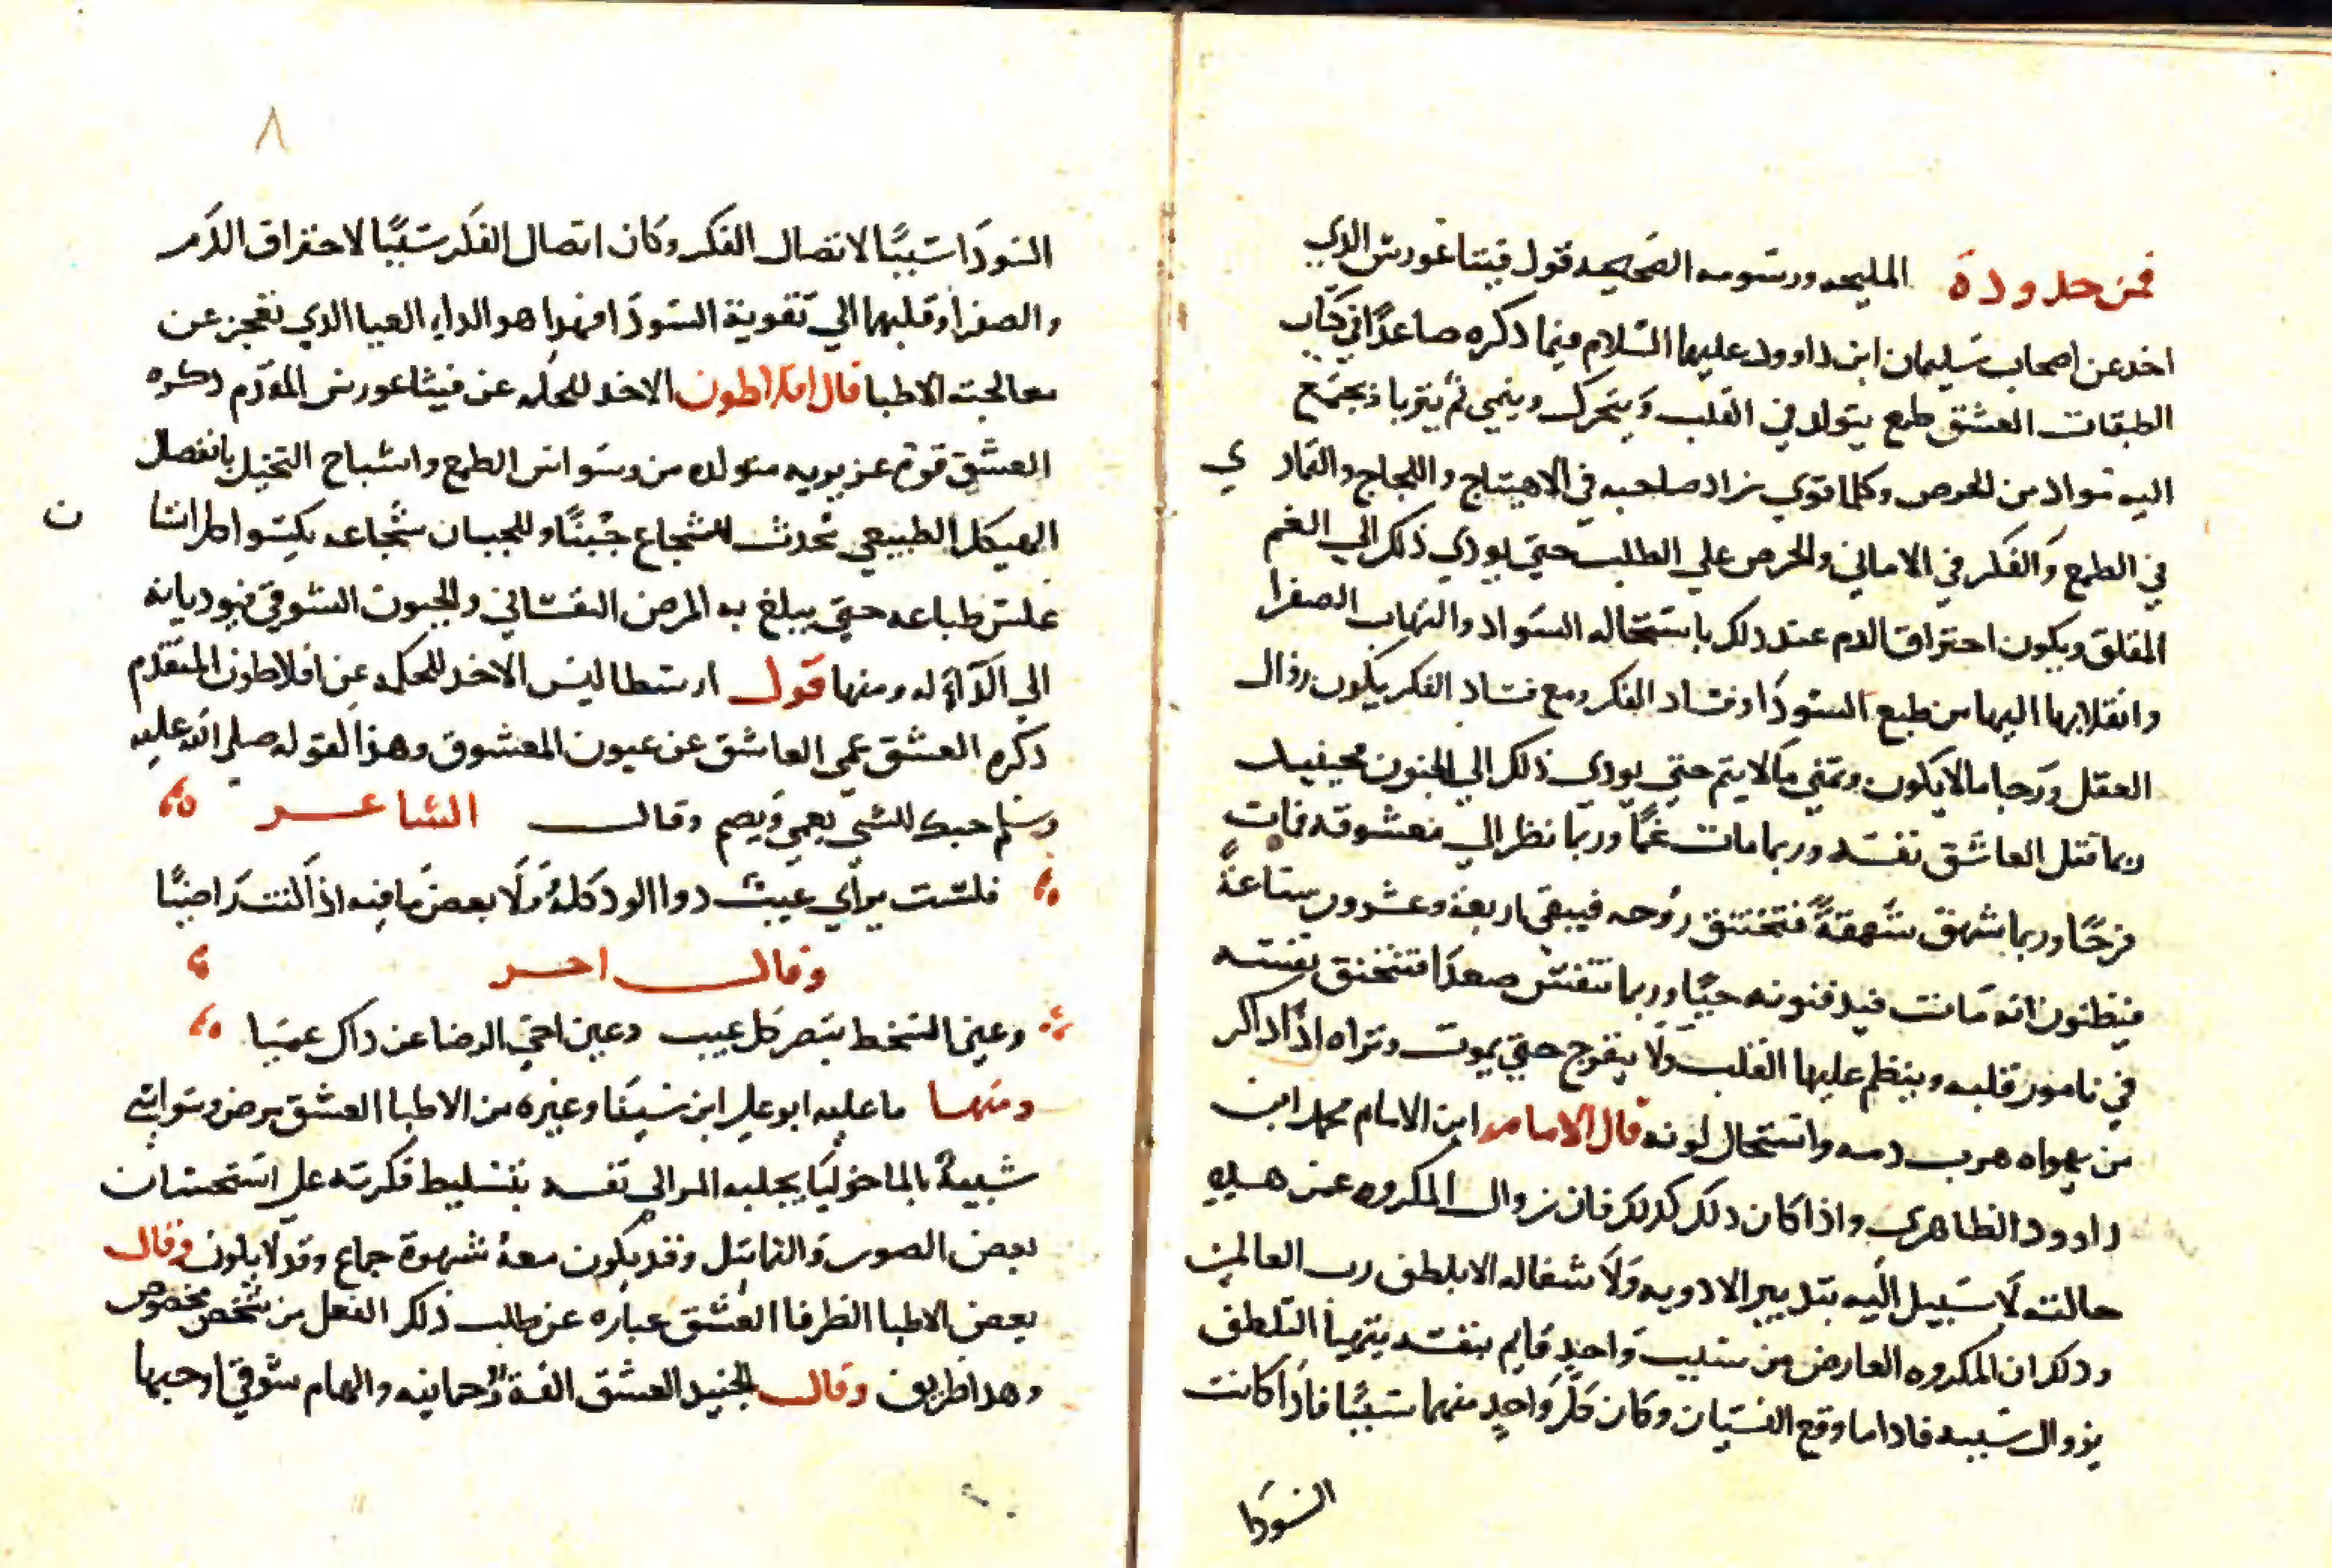 فمن حدوده المليحه ورسومه الصحيحه قول فيتاغورس الدي
اخد عن اصحاب سليمان ابن داوود عليهما السلام فيما دكره صاعدا في كتاب
الطبقات العشق طمع يتولد في القلب ويتحرك وينمي ثم يتربا ويجتمع
اليه مواد من الحرص وكلما قوي زاد صاحبه في الاهتياج واللجاج والتمادي
في الطمع والفكر في الاماني والحرص علي الطلب حتي يودي ذلك الي الغم
المقلق ويكون احتراق الدم عند دلك باستحاله السواد والتهاب الصفرا
وانقلابها اليها من طبع السودا وفساد الفكر ومع فساد الفكر يكون زوال
العقل ورجا ما لا يكون وتمني ما لا يتم حتي يودي ذلك الي الجنون فحينيد
ربما قتل العاشق نفسه وربما مات غما وربما نظر الي معشوقه فمات
فرحا وربما شهق شهقة فتختنق روحه فيبقي اربعة وعشرون ساعة
فيظنون انه مات فيدفنونه حيا وربما تنفس صعدا فتختنق نفسه
في تامور قلبه وينظم عليها القلب ولا ينفرج حتي يموت وتراه اذا ذاكر
من يهواه هرب دمه واستحال لونه قال الامام ابن الامام محمد ابن
داوود الظاهري واذا كان دلك كدلك فان زوال المكروه عمن هده
حالته لا سبيل اليه بتدبير الادويه ولا شفاله الا بلطف رب العالمين
ودلك ان المكروه العارض من سبب واحد قايم بنفسه يتهيا التلطف
بزوال سببه فاداما وقع السببان وكان كل واحد منهما سببا فاذا كانت
السودا
٨
السودا سببا لاتصال الفكر وكان اتصال الفكر سببا لاحتراق الدم
والصفرا وقلبهما الي تقوية السودا فهدا هو الداء العيا الدي تعجز عن
معالجته الاطبا قال افلاطون الاخد للحكمه عن فيثاغورس المقدم دكره
العشق قوة غريزيه متولده من وسواس الطمع واشباح التخيل بانفصال
الهيكل الطبيعي تحدث للشجاع جبنا وللجبان شجاعه يكسوا كل انسان
عكس طباعه حتي يبلغ به المرض النفساني والجنون الشوقي فيوديانه
الي الدا له ومنها قول ارسطاليس الاخد للحكمه عن افلاطون المتقدم
دكره العشق عمي العاشق عن عيوب المعشوق وهذا لقوله صلى الله عليه
وسلم حبك للشي يعمي ويصم وقال الشاعر
فلست براي عيب دوا الود كله ولا بعض ما فيه اذا كنت راضيا
وقال اخر
وعين السخط تبصر كل عيب وعين اخي الرضا عن داك عميا
ومنها ما عليه ابو علي ابن سينا وغيره من الاطبا العشق مرض وسواسي
شبيه بالماخوليا يجلبه المر الي نفسه بتسليط فكرته علي استحسان
بعض الصور والتماثيل وقد يكون معه شهوة جماع وقد لا يكون وقال
بعض الاطبا الظرفا العشق عباره عن طلب ذلك الفعل من شخص مخصوص
وهدا ظريف وقال الجنيد العشق الفة رحمانيه والهام شوقي اوجبها